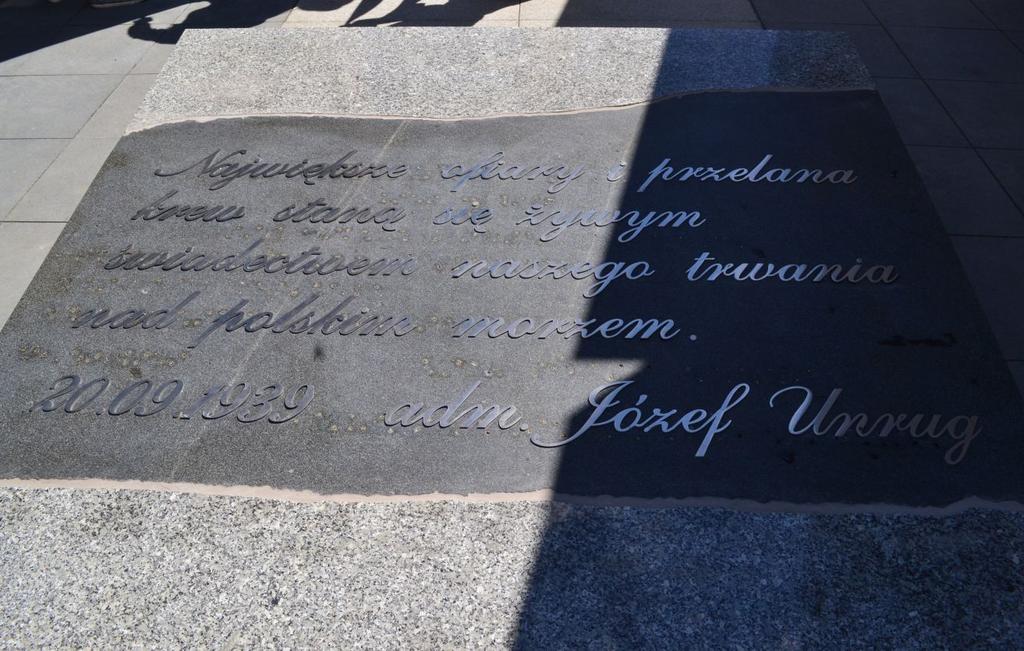 Największe ofiary i przelana
krew staną się żywym
świadectwem naszego trwania
nad polskim morzem.
20.09.1939 adm. Józef Unrug